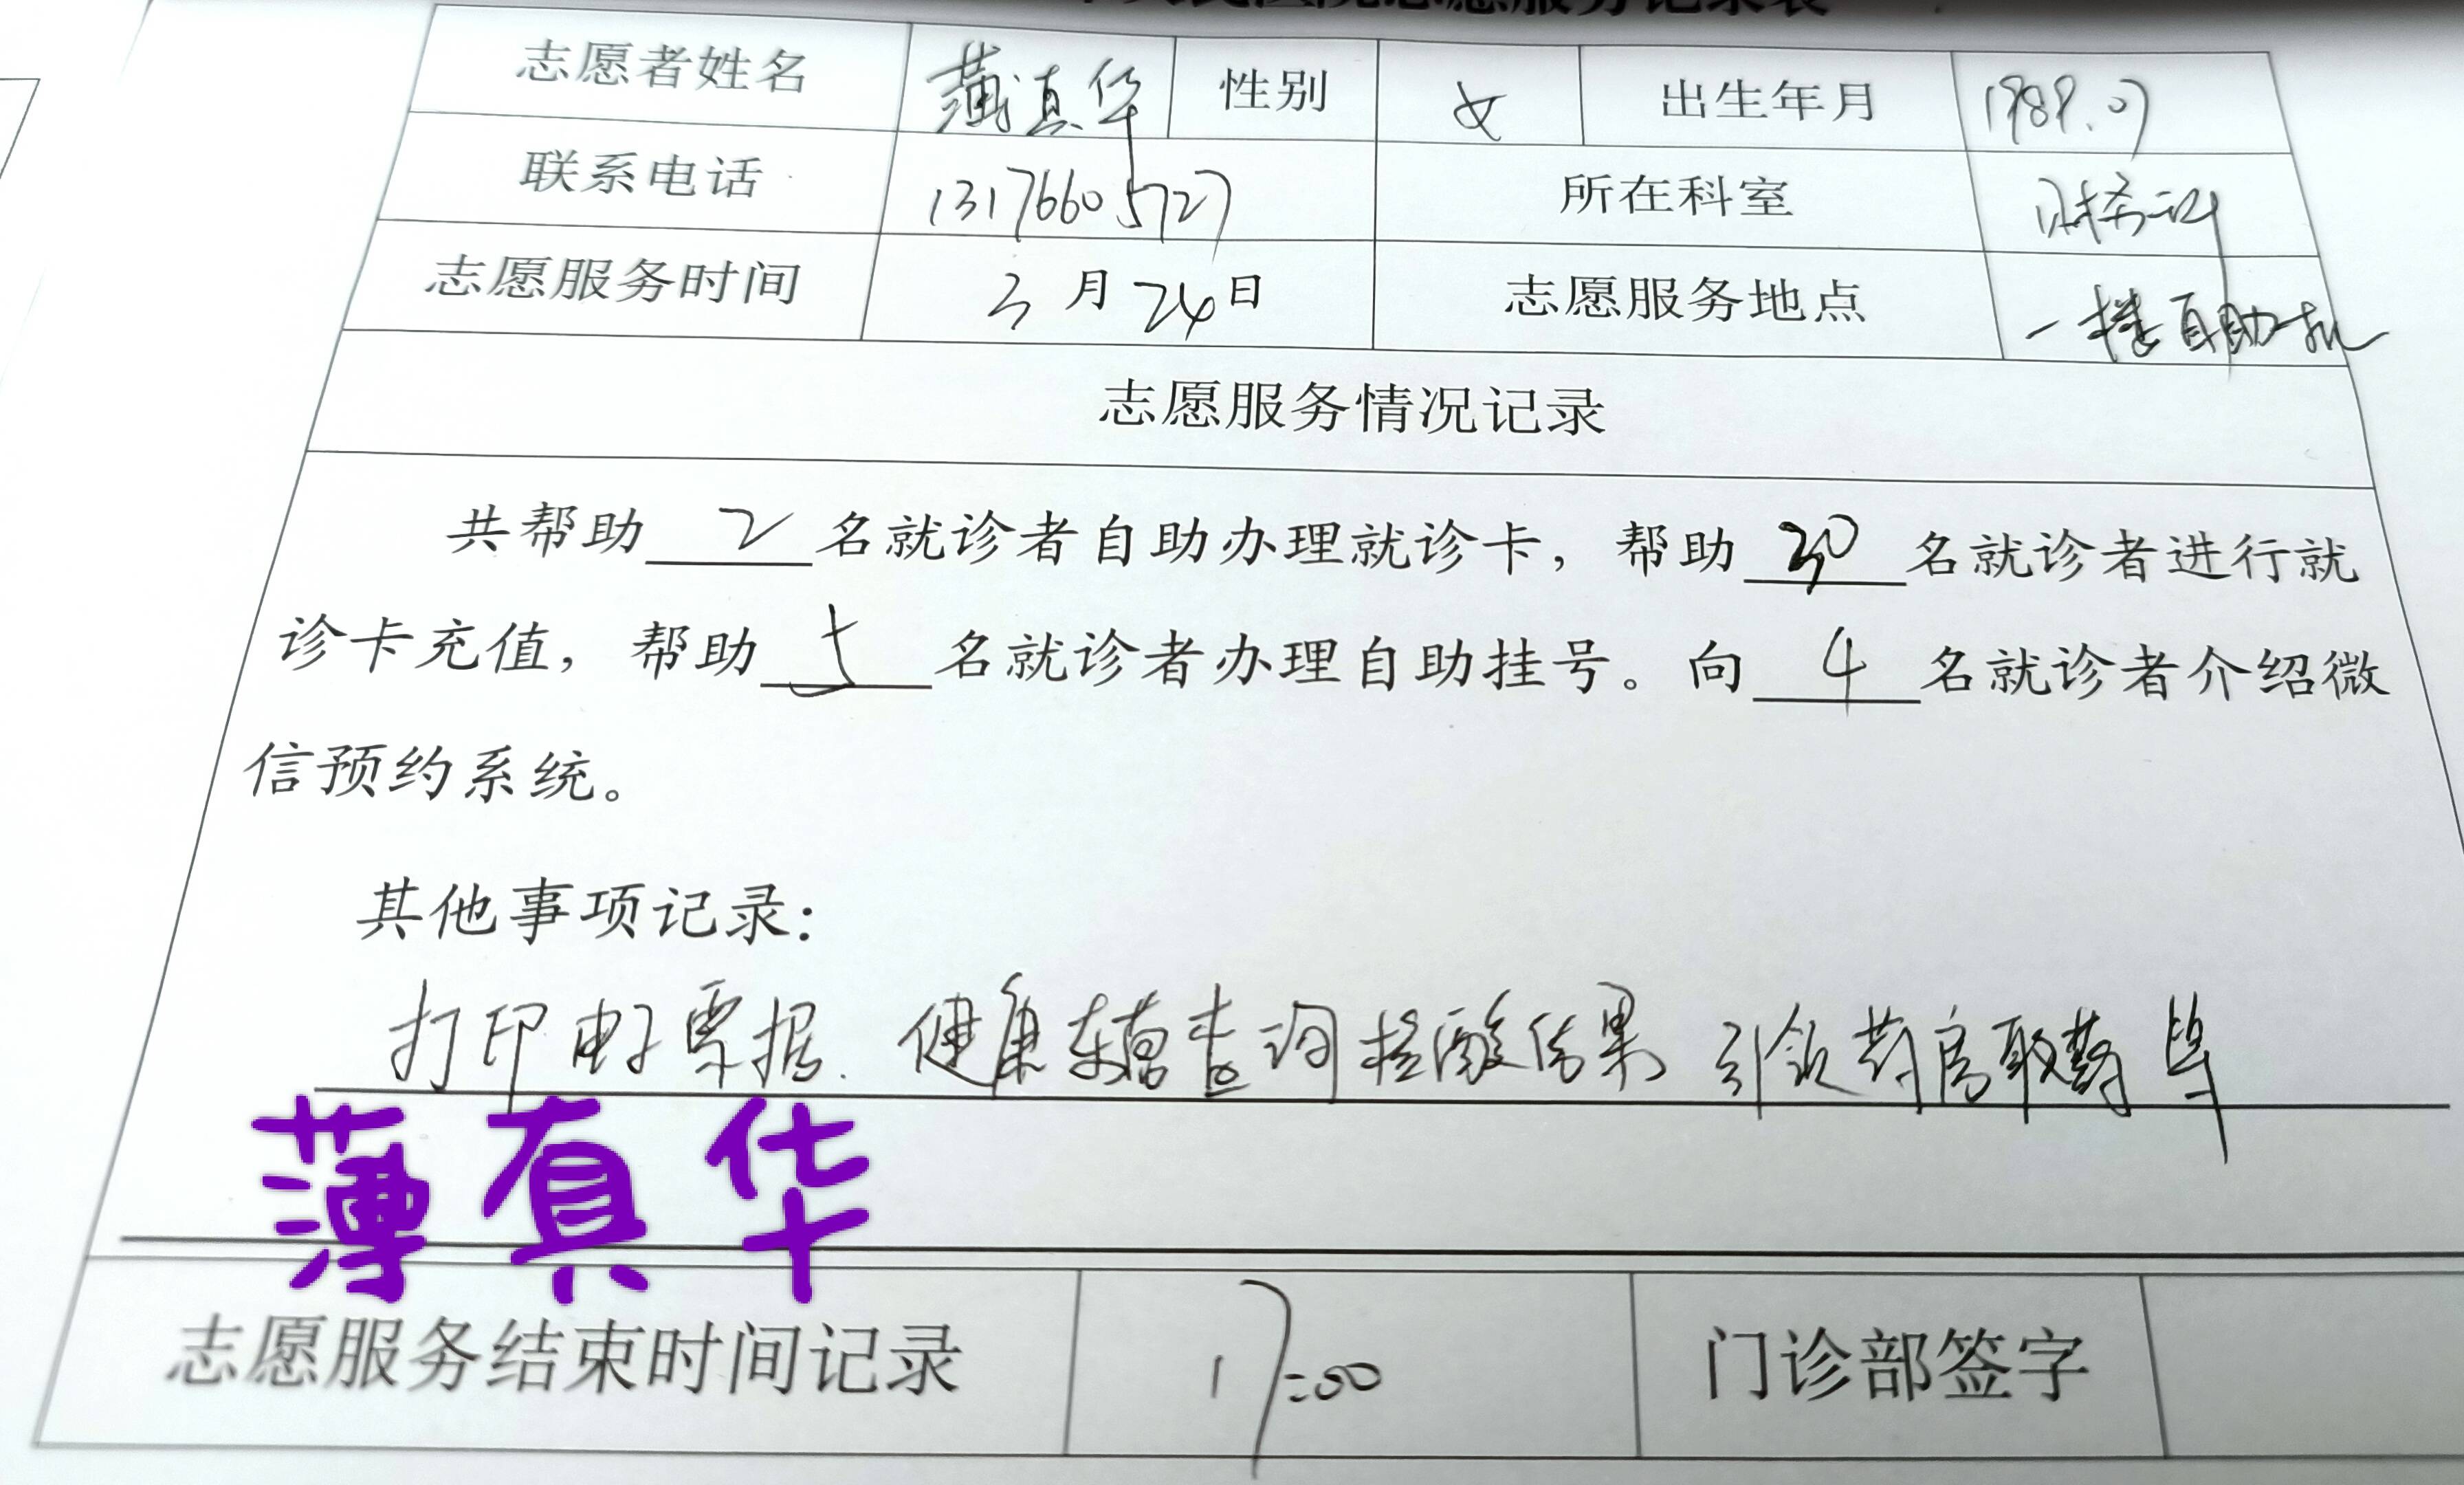 人民医院志愿服务记录表
志愿者姓名 薄真华 性别 女 出生年月 1989.07
联系电话 13176605727 所在科室 财务科
志愿服务时间 3月24日 志愿服务地点 一楼自助机
志愿服务情况记录
共帮助 2 名就诊者自助办理就诊卡，帮助 30 名就诊者进行就
诊卡充值，帮助 5 名就诊者办理自助挂号。向 4 名就诊者介绍微
信预约系统。
其他事项记录：
打印电子票据. 健康 查询核酸结果 引领药房取药
薄真华
志愿服务结束时间记录 17:00 门诊部签字